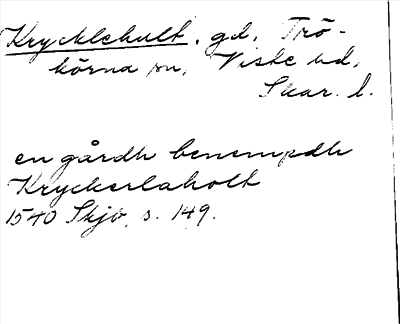 Krycklehult, gd, Trö-
körna sn, Viste hd,
Skar. l.
en gårdh benempdh
Kryckerlaholt
1540 Skjö, s. 149.